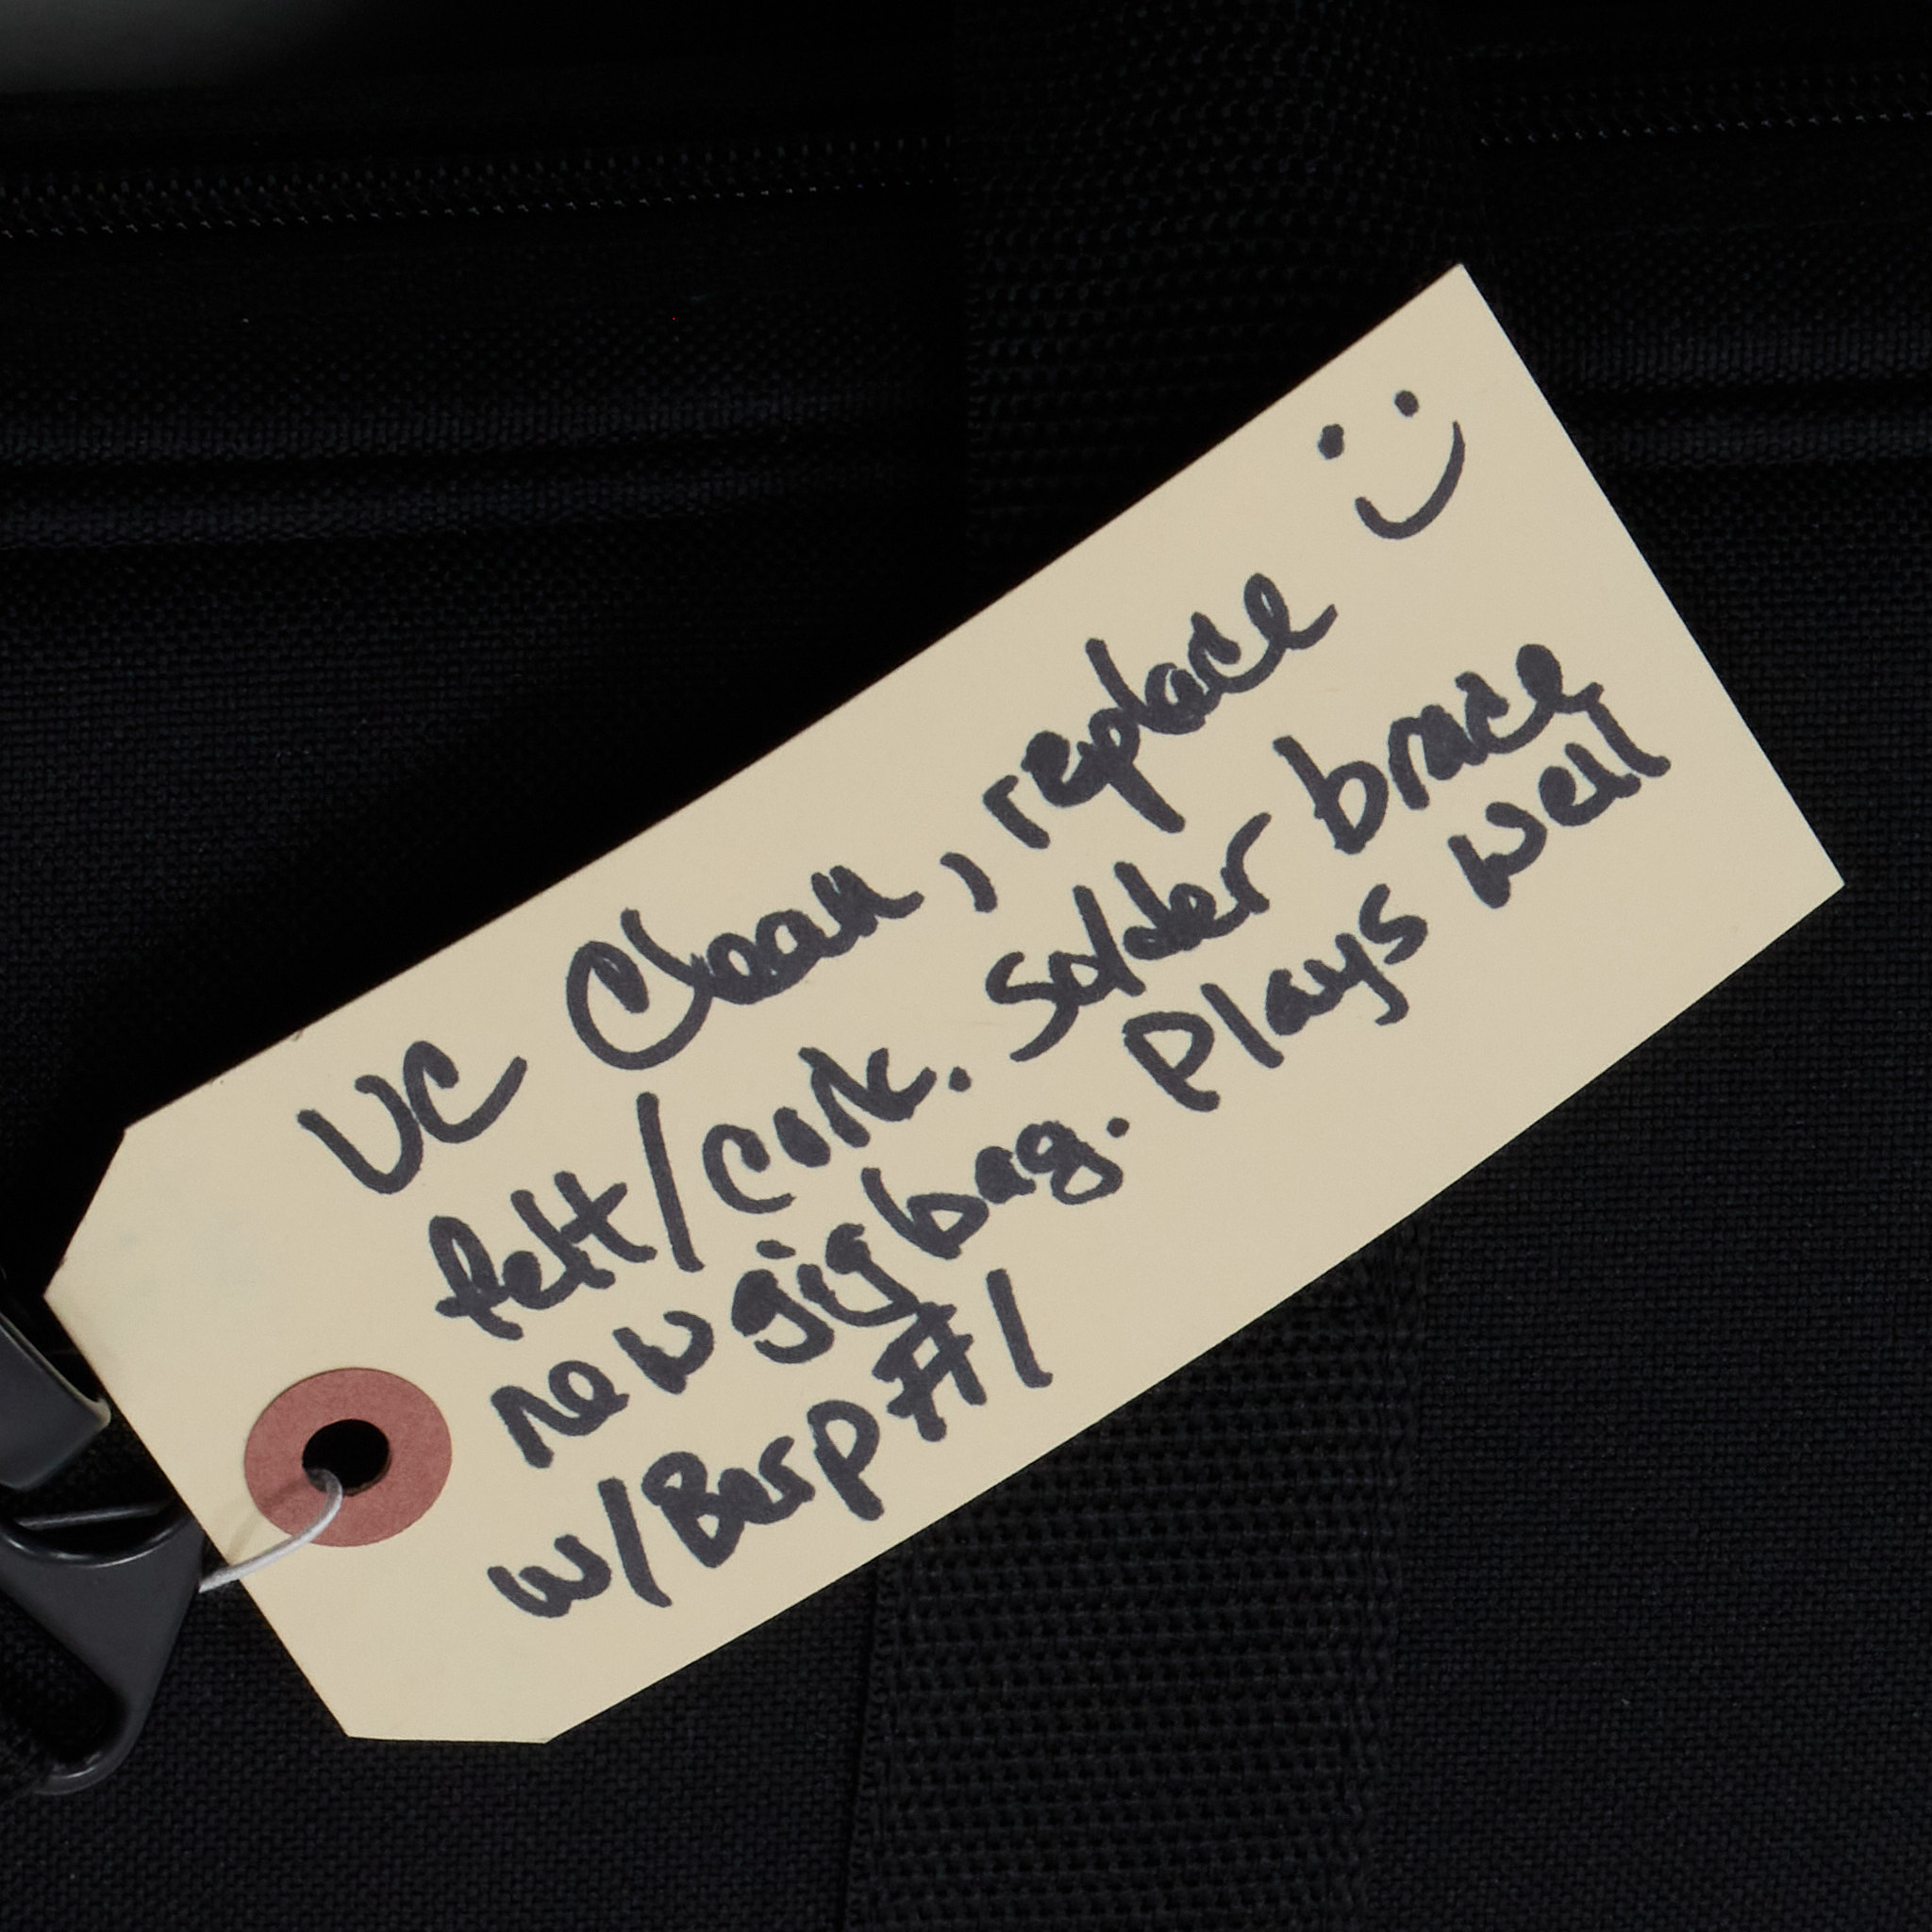 UC Clean, replace
felt/cork. Solder brace
new gig bag. Plays well
w/Berp #1